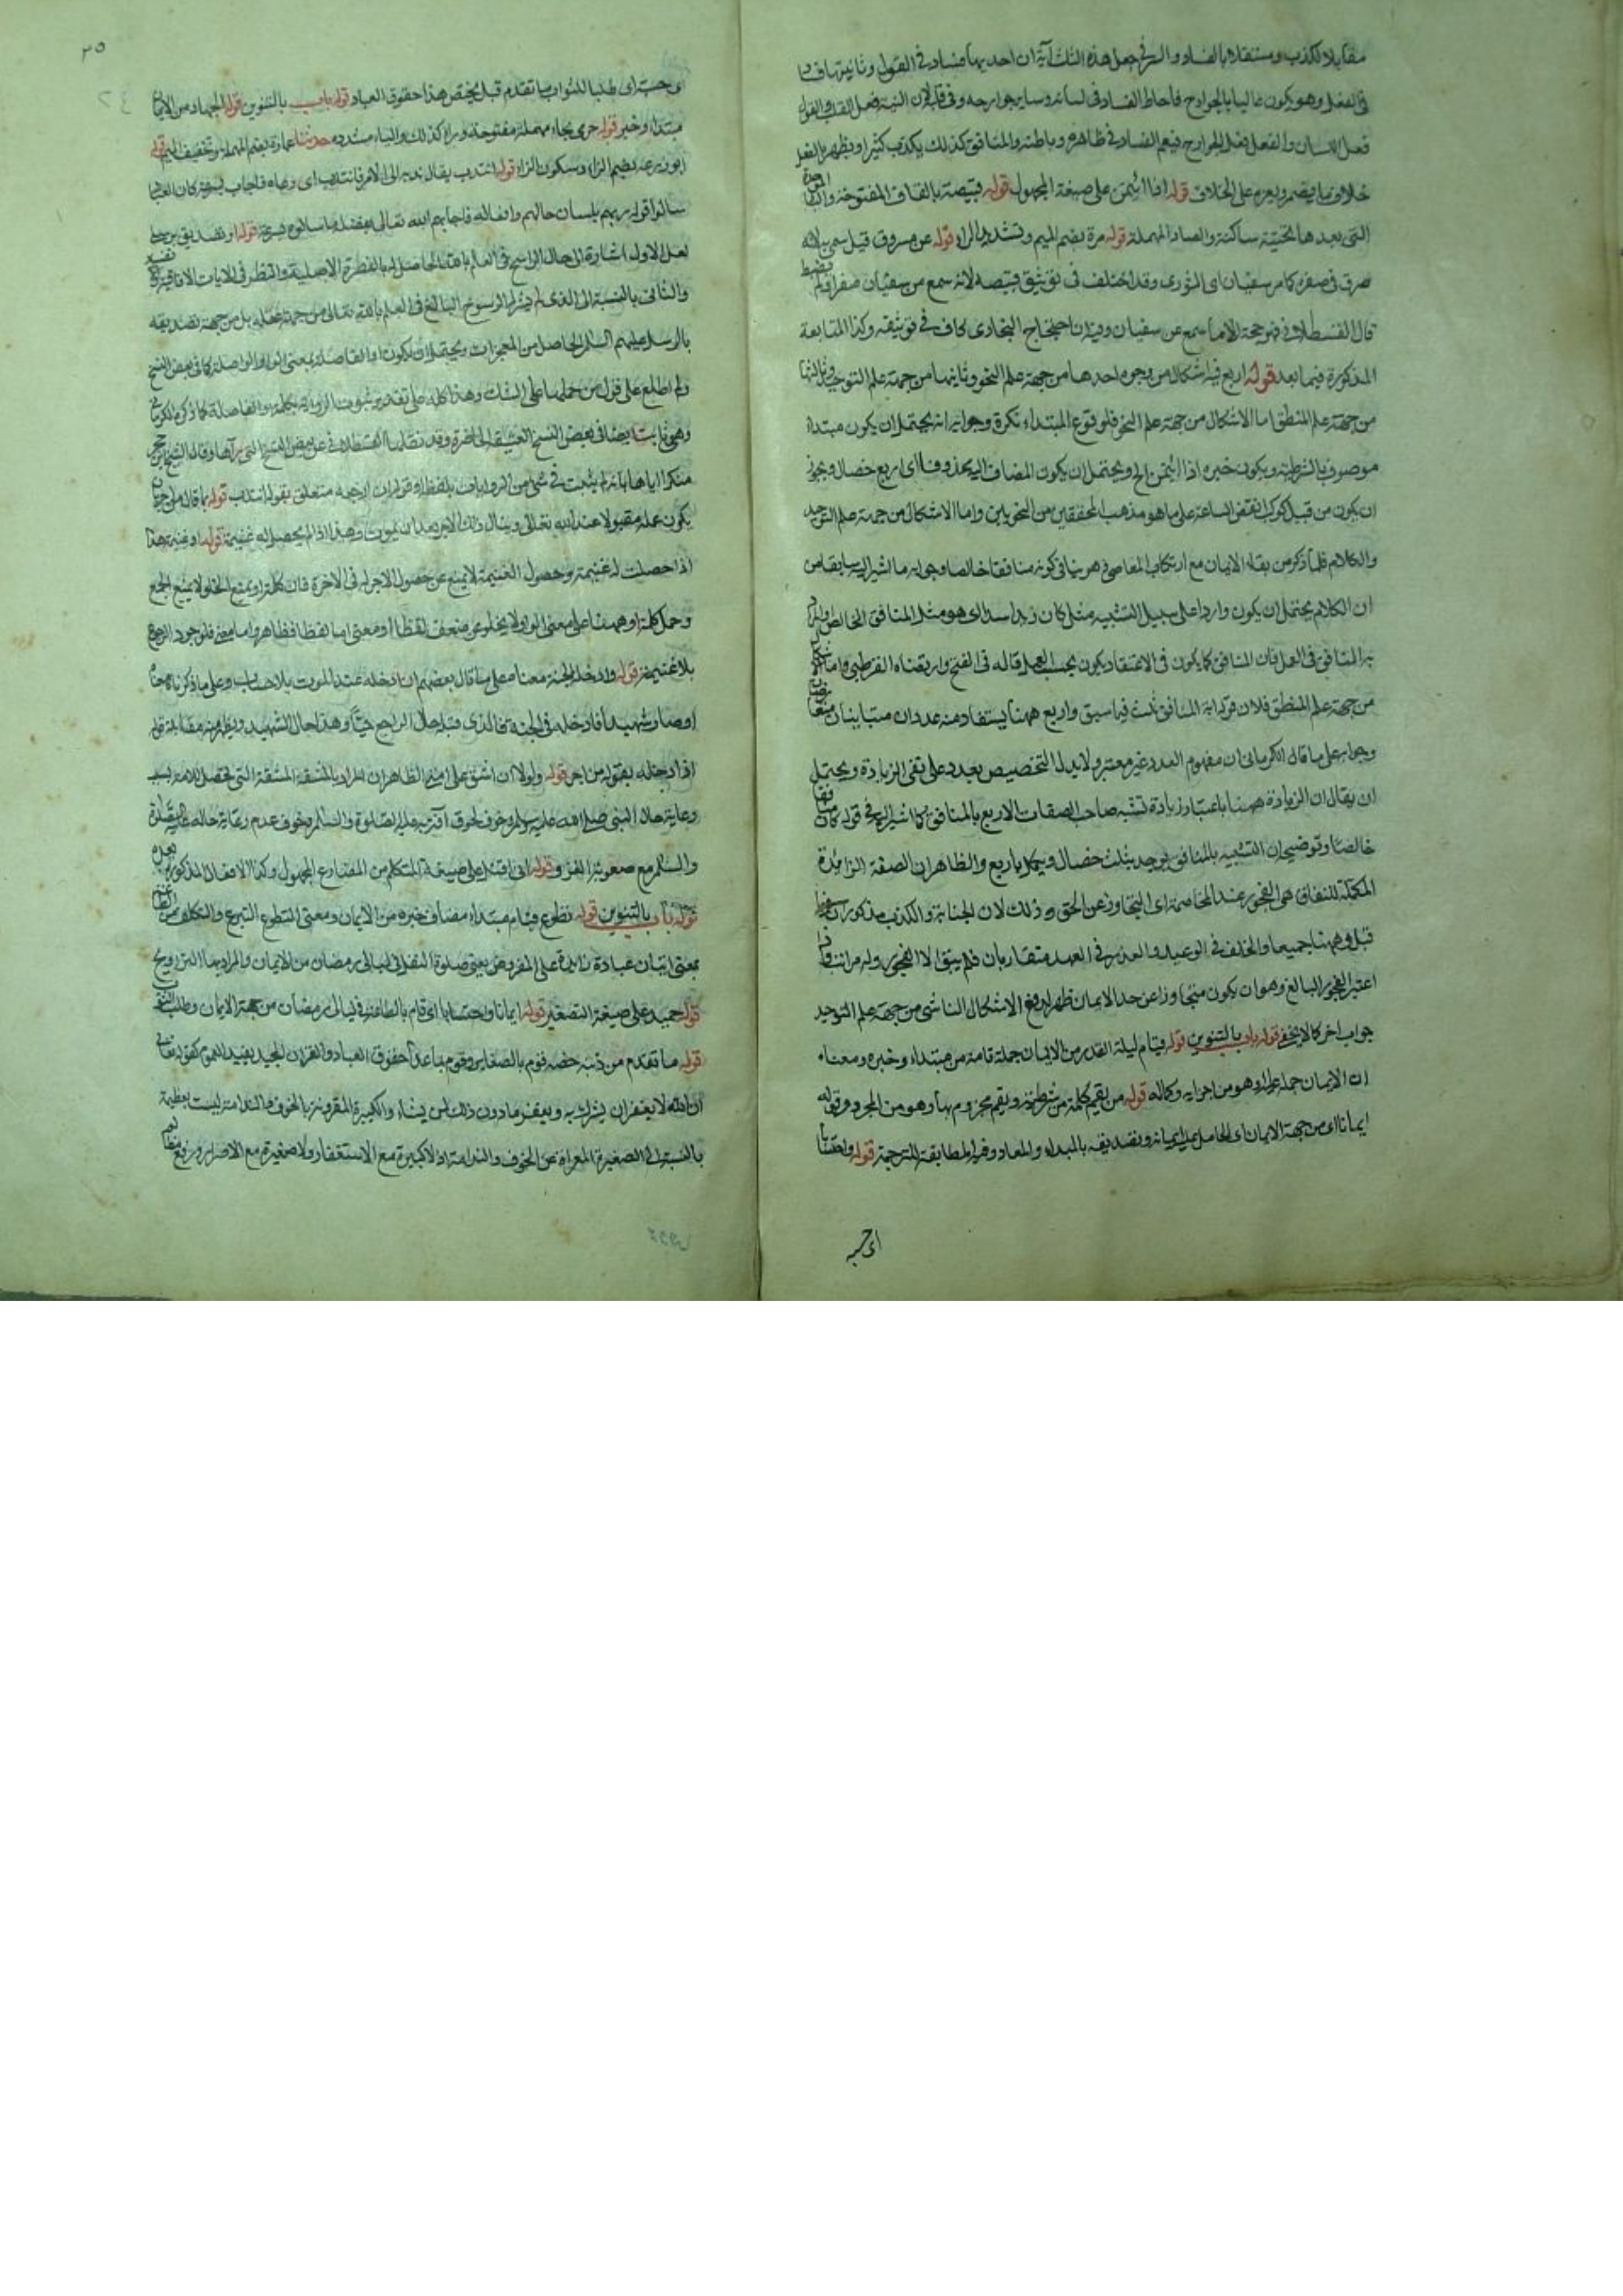 مقابلا لكذب ومستقلا بالفساد والسر في جعل هذه الثلث آية ان احديها فساد في القول وثانيتها في
في الفعل وهو يكون غالبا بالجوارح فاحاط الفساد في لسانه وساير جوارحه وفي النية فعل القلب والقول
فعل اللسان والفعل فعل الجوارح فيعم الفساد في ظاهره وباطنه والمنافق كذلك يكذب كثيرا ويظهر بالفعل
خلاف ما يضمر ويعزم على الخلاف قوله اذا ائتمن على صيغة المجهول قوله قبيصة بالقاف المفتوحة والباء الموحدة
التي بعدها تحتية ساكنة والصاد المهملة قوله مرة بضم الميم وتشديد الراء قوله عن مسروق قيل سمي به لانه
سرق في صغره كا مر سفيان اى الثورى وقد اختلف فى توثيق قبيصة لانه سمع من سفيان صغيرا فلم يضبط
قال القسطلاني فهو حجة الا ما سمع عن سفيان احتجاج البخارى كاف في توثيقه وكذا المتابعة
المذكورة فيما بعد قوله اربع فيه اشكال من وجوه احدها من جهة علم النحو وثانيها من جهة علم التوحيد وثالثها
من جهة علم المنطق اما الاشكال من جهة علم النحو فلوقوع المبتداء نكرة وجوابه انه يحتمل ان يكون مبتداء
موصوف بالشرطية ويكون خبره اذا ائتمن الخ ويحتمل ان يكون المضاف اليه محذوفا اى اربع خصال ويجوز
ان يكون من قبيل كوكب انقض الساعة على ما هو مذهب المحققين من النحويين واما الاشكال من جهة علم التوحيد
والكلام فلما ذكر من بقاء الايمان مع ارتكاب المعاصى فهو ينافى كونه منافقا خالصا وجوابه ما اشير اليه سابقا من
ان الكلام يحتمل ان يكون واردا على سبيل التشبيه مثل كان زيد اسد اى هو مثل المنافق الخالص او المراد
به المنافق فى العمل فان المنافق كما يكون فى الاعتقاد يكون بحسب العمل قاله فى الفتح وارتضاه القرطبى واما الاشكال
من جهة علم المنطق فلان قوله اية المنافق ثلث فيما سبق واربع ههنا يستفاد منه عددان متباينان
وجوابه على ما قال الكرمانى ان مفهوم العدد غير معتبر ولا يدل التخصيص بعدد على نفى الزيادة ويحتمل
ان يقال ان الزيادة ههنا باعتبار زيادة تشبه صاحب الصفات الاربع بالمنافق كما اشير اليه في قوله كان منافقا
خالصا وتوضيحه ان التشبيه بالمنافق يوجد بثلث خصال ويكمل باربع والظاهر ان الصفة الزائدة
المكملة للنفاق هى الفجور عند المخاصمة اى التجاوز عن الحق وذلك لان الخيانة والكذب مذكوران
قبل وههنا جميعا والخلف فى الوعد والغدر في العهد متقاربان فلم يبق الا الفجور وله مراتب
اعتبر الفجور البالغ وهو ان يكون متجاوزا عن حد الايمان ظهر لدفع الاشكال الناشى من جهة علم التوحيد
جواب اخر كما لا يخفى قوله باب بالتنوين قوله قيام ليلة القدر من الايمان جملة تامة من مبتداء وخبره ومعناه
ان الايمان وهو من اجزايه وكماله قوله من يقم كلمة من شرطية ويقم مجزوم بها وهو من المجرد وقوله
ايمانا اى من جهة الايمان اى الحامل عليه ايمانه وتصديقه بالمبداء والمعاد لمطابقة الترجمة قوله واحتسابا
اى حسبة
اى حسبة اى طلبا للثواب ما تقدم قبل يختص هذا حقوق العباد قوله باب بالتنوين قوله الجهاد من الايمان
مبتداء وخبر قوله حرمى بحاء مهملة مفتوحة وراء كذلك والياء مشددة حدثنا عمارة بضم المهملة وتخفيف الميم قوله
ابو زرعة بضم الزاء وسكون الراء قوله انتدب يقال ندبه الى الامر فانتدب اى دعاه فاجاب
سالوا قوله ربهم بلسان حالهم وافعاله فاجابهم الله تعالى بفضل ما سالوه قوله او تصديق برسلى
لعل الاول اشارة الى حال الراسخ فى العلم بالله الحاصل له بالفطرة الاصلية والنظر فى الايات
والثانى بالنسبة الى الذى لم يتيسر له الرسوخ البالغ فى العلم بالله تعالى من جهة عقله بل من جهة تصديقه
بالرسل عليهم السلام الحاصل من المعجزات ويحتمل ان يكون او الفاصلة بمعنى الواو الواصلة كما فى بعض النسخ
ولم اطلع على قول من حملها على الشك وهذا كله على تقدير ثبوت الرواية بكلمة او الفاصلة كما ذكره الكرمانى
وهو ثابت ايضا فى بعض النسخ العتيقة الحاضرة وقد نقلها القسطلاني عن بعض النسخ التى راها وقال الشيخ ابن حجر
منكرا اياها بانه لم يثبت فى شى من الروايات بلفظ او قوله ان ارجعه متعلق بقوله انتدب قوله بما نال من اجر بان
يكون عمله مقبولا عند الله تعالى وينال ذلك الاجر بعد ان يموت وهذا اذا لم يحصل له غنيمة قوله او غنيمة هذا
اذا حصلت له غنيمة وحصول الغنيمة لا يمنع عن حصول الاجر له فى الاخرة فان كلمة او يمنع الخلو لا يمنع الجمع
وحمل كلمة او ههنا على معنى الواو لا يخلو عن ضعف لفظا او معنى اما لفظا فظاهر واما معنى فلوجود الرجوع
بلا غنيمة قوله وادخله الجنة معناه على ما قال بعضهم ان ادخله عند الموت بلا حساب وعلى ما ذكرناه
او صار شهيدا فادخله فى الجنة الراجع حيا وهذا حال الشهيد ويظهر من مقابلة قوله
اذا رجعته بقوله من اجر قوله ولولا ان اشق على امتى الظاهر ان المراد بالمشقة المشقة التى تحصل للامة بسبب
رعاية حال النبى صلى الله عليه وسلم
والسلام مع صعوبة الغزو قوله انى اقتل على صيغة المتكلم من المضارع المجهول وكذا الافعال المذكورة بعده
قوله باب بالتنوين قوله تطوع قيام مبتداء مضاف خبره من الايمان ومعنى التطوع التبرع والتكلف
بمعنى اتيان عبادة زائدة على المفروض يعنى صلوة النفل فى ليالى رمضان من الايمان والمراد بها التراويح
قوله حميد على صيغة التصغير قوله ايمانا واحتسابا اى قام بالطاعة فى ليالى رمضان من جهة الايمان وطلب الثواب
قوله ما تقدم من ذنبه خصه قوم بالصغاير وقوم بما عدا حقوق العباد والقران المجيد يفيد العموم كقوله تعالى
ان الله لا يغفر ان يشرك به ويغفر ما دون ذلك لمن يشاء والكبيرة المقرونة بالخوف والندامة ليست بعظيمة
بالنسبة الى الصغيرة المعراة عن الخوف والندامة اذ لا كبيرة مع الاستغفار ولا صغيرة مع الاصرار
٢٥